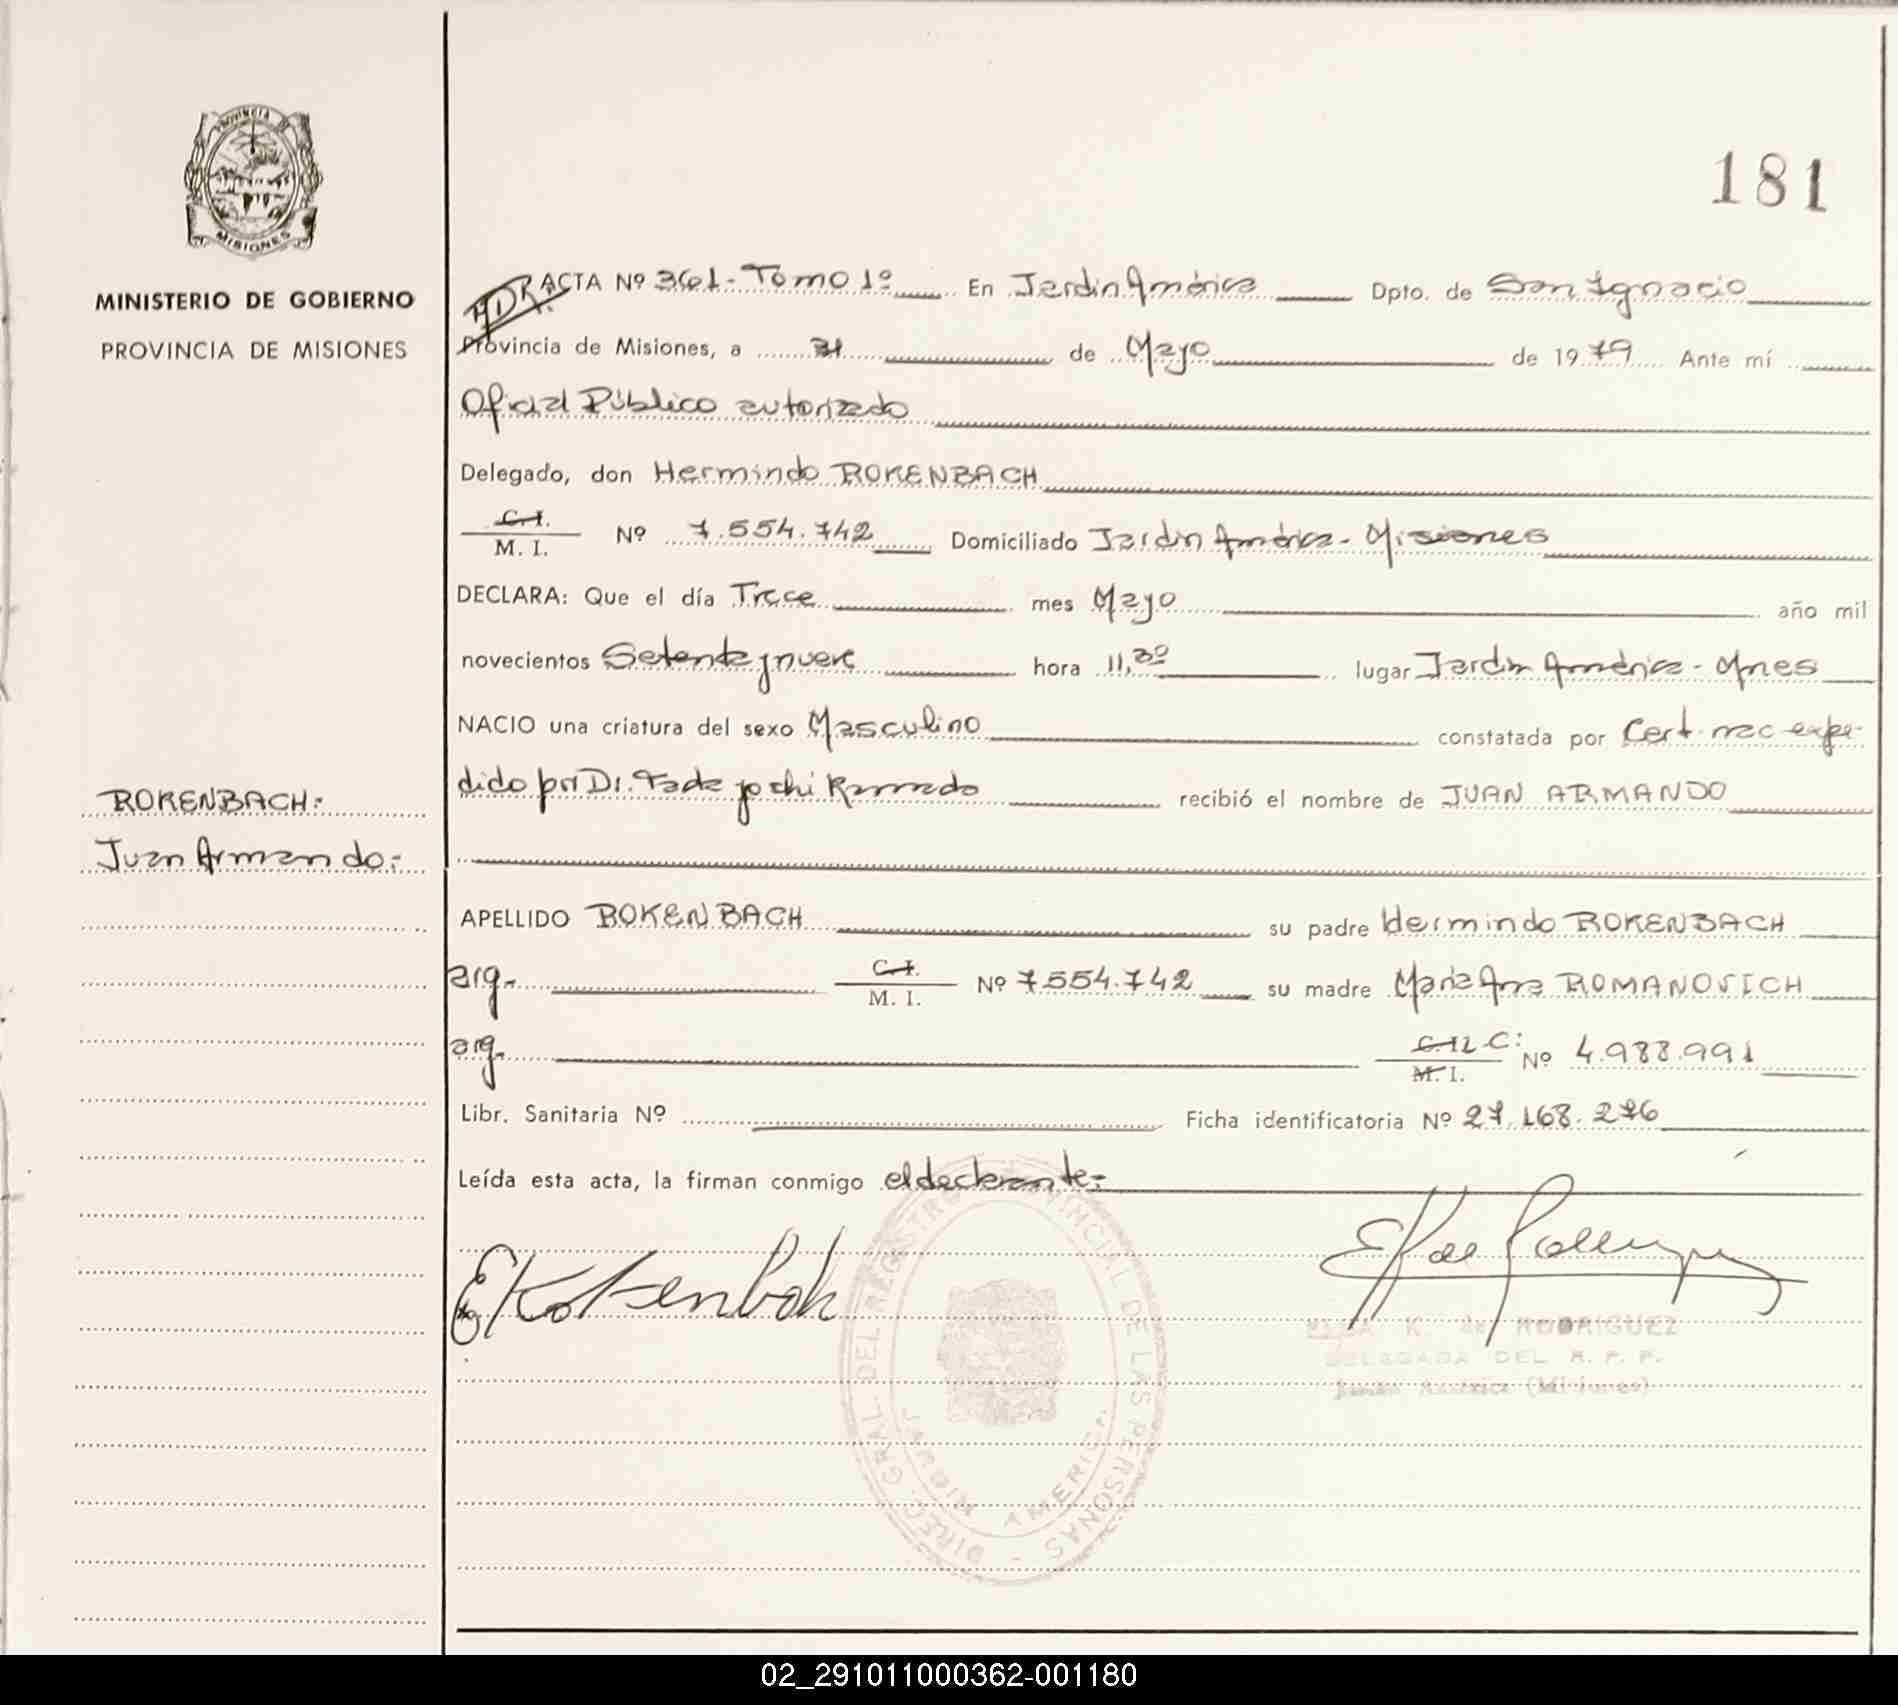 181
PROVINCIA
MISIONES
MINISTERIO DE GOBIERNO
PROVINCIA DE MISIONES
ACTA Nº 361 - Tomo 1º En Jardin América Dpto. de San Ignacio
Provincia de Misiones, a 31 de Mayo de 1979 Ante mí
Oficial Público autorizado
Delegado, don Hermindo ROKENBACH
C.I.
M. I. Nº 7.554.742 Domiciliado Jardin América - Misiones
DECLARA: Que el día Trece mes Mayo año mil
novecientos Setenta y nueve hora 11,30 lugar Jardin América - Mnes
NACIO una criatura del sexo Masculino constatada por Cert. nac expe-
dido por Dr. recibió el nombre de JUAN ARMANDO
ROKENBACH:
Juan Armando:-
APELLIDO ROKENBACH su padre Hermindo ROKENBACH
arg.- C.I.
M. I. Nº 7.554.742 su madre Maria Ana ROMANOVICH
arg.- L.C: Nº 4.988.991
M. I.
Libr. Sanitaria Nº Ficha identificatoria Nº 27.168.276
Leída esta acta, la firman conmigo el declarante:-
K. de RODRIGUEZ
DELEGADA DEL R. P. P.
Jardin América (Misiones)
DIREC. GRAL. DEL REGISTRO PROVINCIAL DE LAS PERSONAS
JARDIN AMERICA
02_291011000362-001180